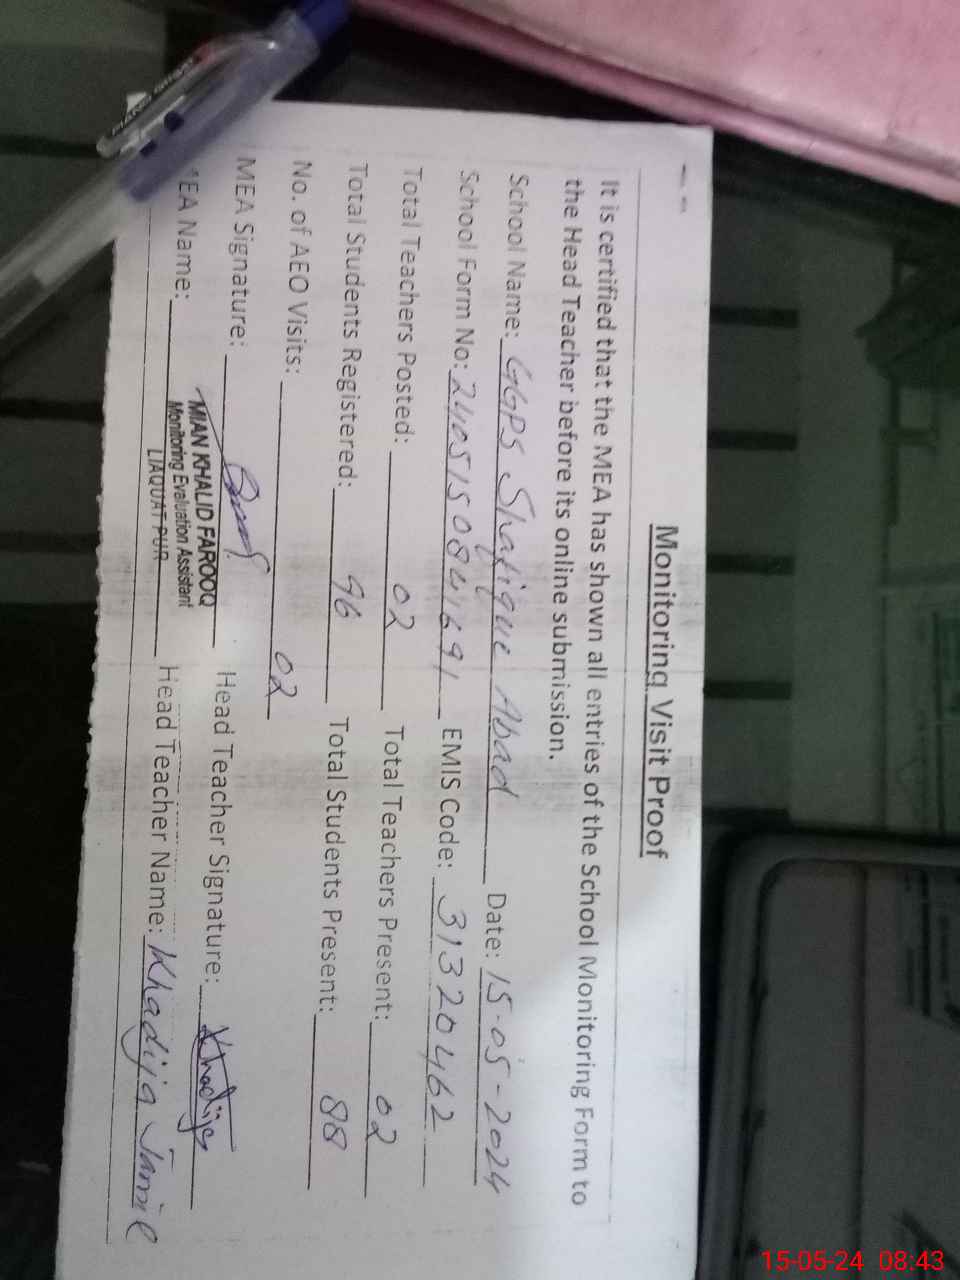 Monitoring Visit Proof
It is certified that the MEA has shown all entries of the School Monitoring Form to
the Head Teacher before its online submission.
School Name: GGPS Shafique Abad Date: 15-05-2024
School Form No: 2405150841691 EMIS Code: 31320462
Total Teachers Posted: 02 Total Teachers Present: 02
Total Students Registered: 96 Total Students Present: 88
No. of AEO Visits: 02
MEA Signature: Head Teacher Signature: Khadija
MIAN KHALID FAROOQ
Monitoring Evaluation Assistant
LIAQUAT PUR
EA Name: Head Teacher Name: Khadija Jamil
15-05-24 08:43